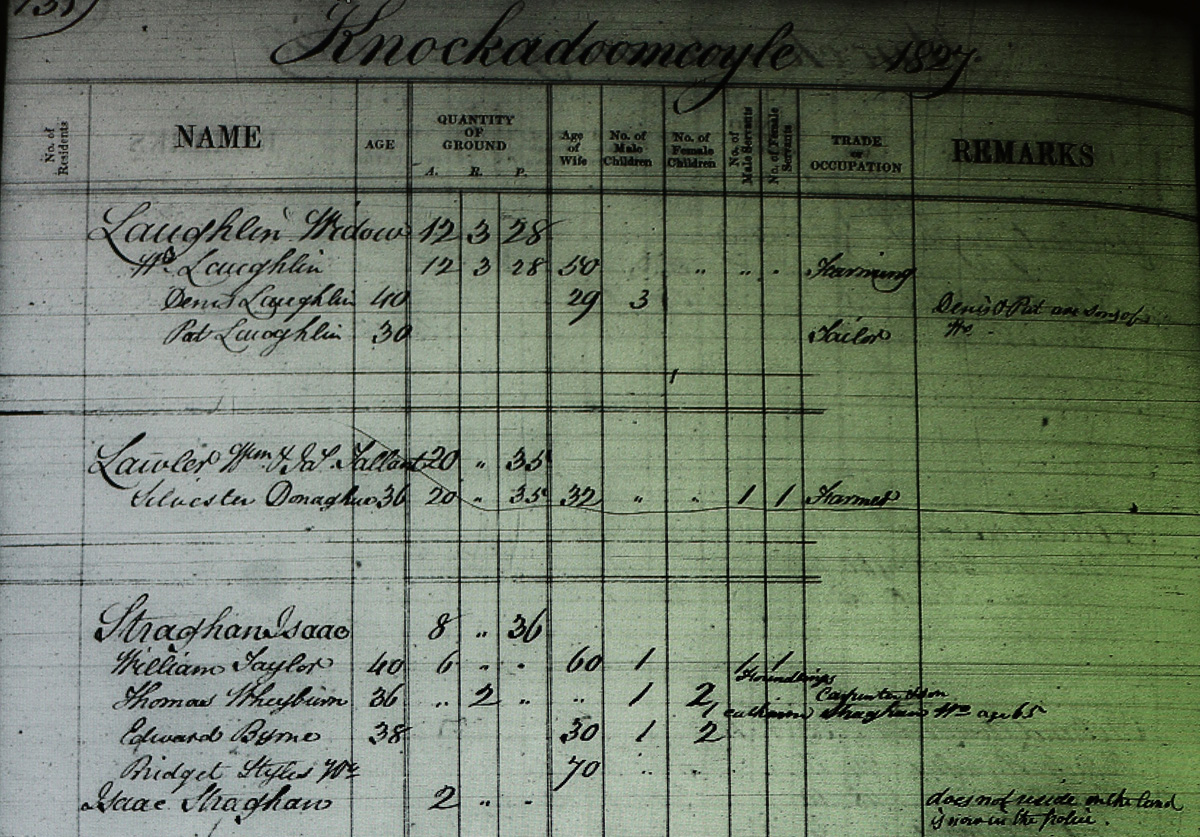 Knockadoomcoyle 1827.
No. of Residents NAME AGE QUANTITY OF GROUND A. R. P. Age of Wife No. of Male Children No. of Female Children No. of Male Servants No. of Female Servants TRADE or OCCUPATION REMARKS
Laughlin Widow 12 3 28
Wo. Laughlin 12 3 28 50 " " " Farming
Denis Laughlin 40 29 3 Denis & Pat are sons of
Pat Laughlin 30 Tailor Wo.
Lawler Wm. & Jas. Tallant 20 " 35
Silvester Donaghue 36 20 " 35 32 " " 1 1 Farmer
Straghan Isaac 8 " 36
William Taylor 40 6 " " 60 1 1 1
Foundlings
Thomas Wheyburn 36 " 2 " " 1 2 Carpenter
Catherine Straghan Wo. age 65
Edward Byrne 38 30 1 2
Bridget Styles Wo. 70 " "
Isaac Straghan 2 " " does not reside on the land
is now in the Police.